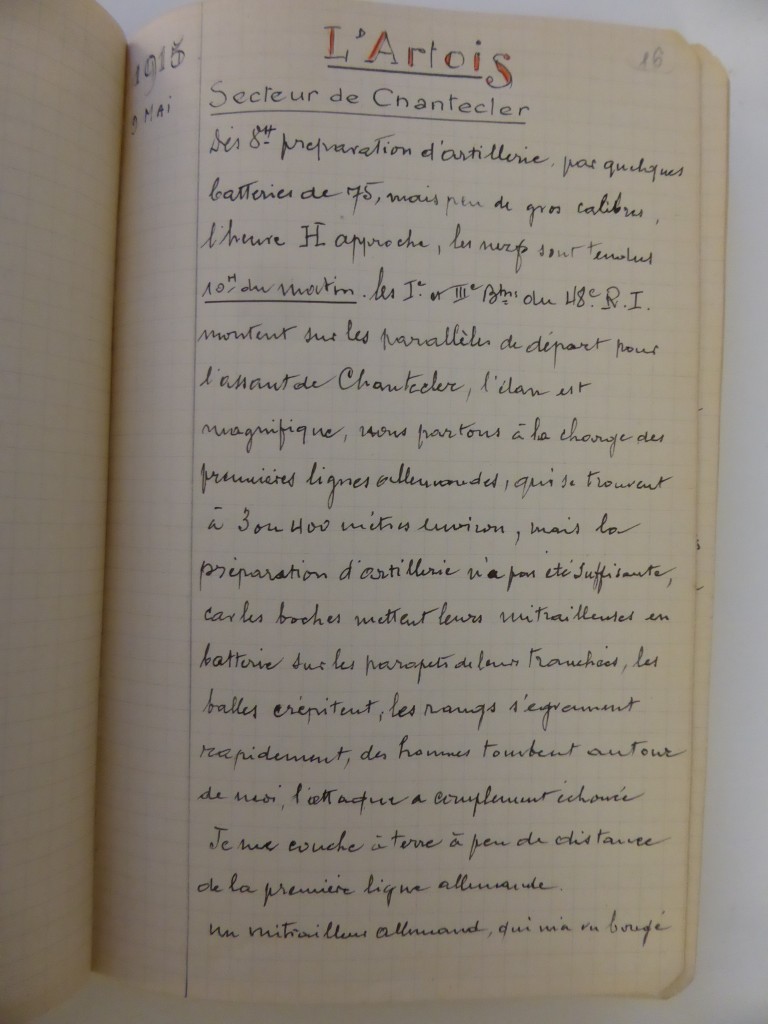 1915
9 MAI
16
L'Artois
Secteur de Chantecler
Dès 8H préparation d'artillerie, par quelques
batteries de 75, mais peu de gros calibres,
l'heure H approche, les nerfs sont tendus
10H du matin. les Ie et IIIe Btns du 48e R.I.
montent sur les parallèles de départ pour
l'assaut de Chantecler, l'élan est
magnifique, nous partons à la charge des
premières lignes allemandes, qui se trouvent
à 3 ou 400 mètres environ, mais la
préparation d'artillerie n'a pas été suffisante,
car les boches mettent leurs mitrailleuses en
batterie sur les parapets de leurs tranchées, les
balles crépitent, les rangs s'égrainent
rapidement, des hommes tombent autour
de moi, l'attaque a complement échouée
Je me couche à terre à peu de distance
de la première ligne allemande.
Un mitrailleur allemand, qui m'a vu bougé